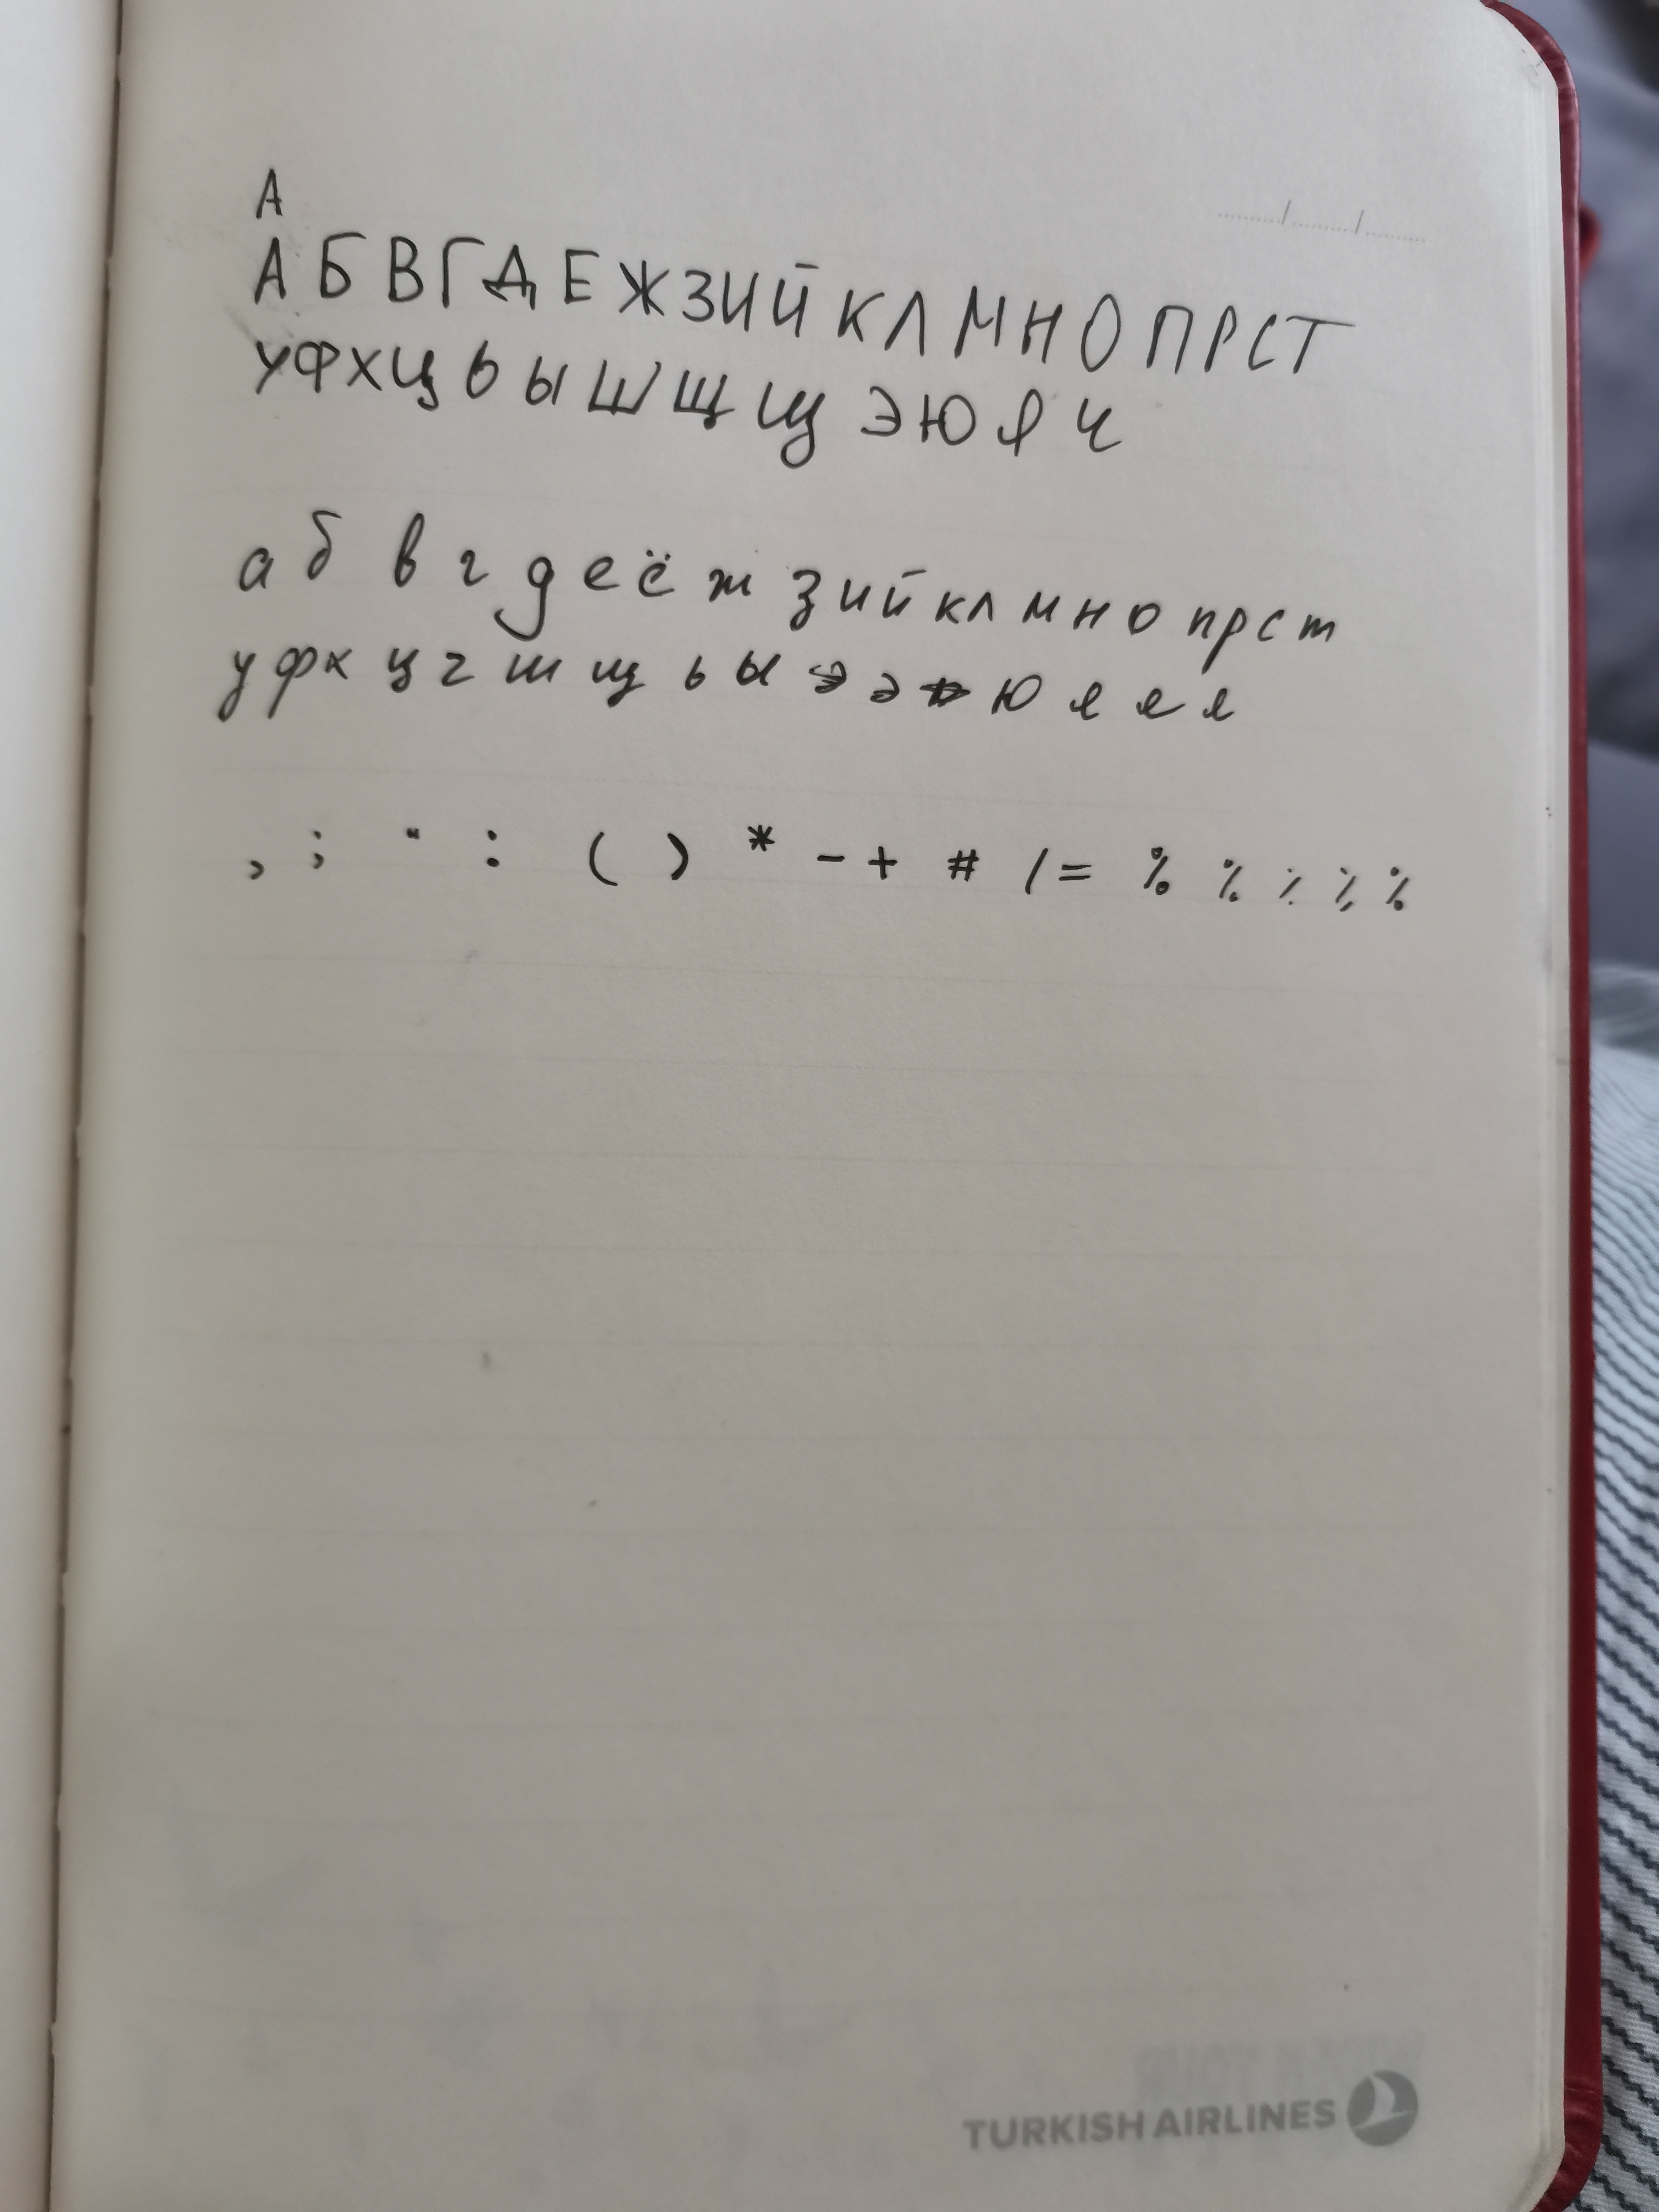 А
А Б В Г Д Е Ж З И Й К Л М Н О П Р С Т
У Ф Х Ц Ь Ы Ш Щ Щ Э Ю Я Ч
а б в г д е ё ж з и й к л м н о п р с т
у ф х ц ч ш щ ь ы э ю я я я
, ; " : ( ) * - + # / = % % % % %
TURKISH AIRLINES